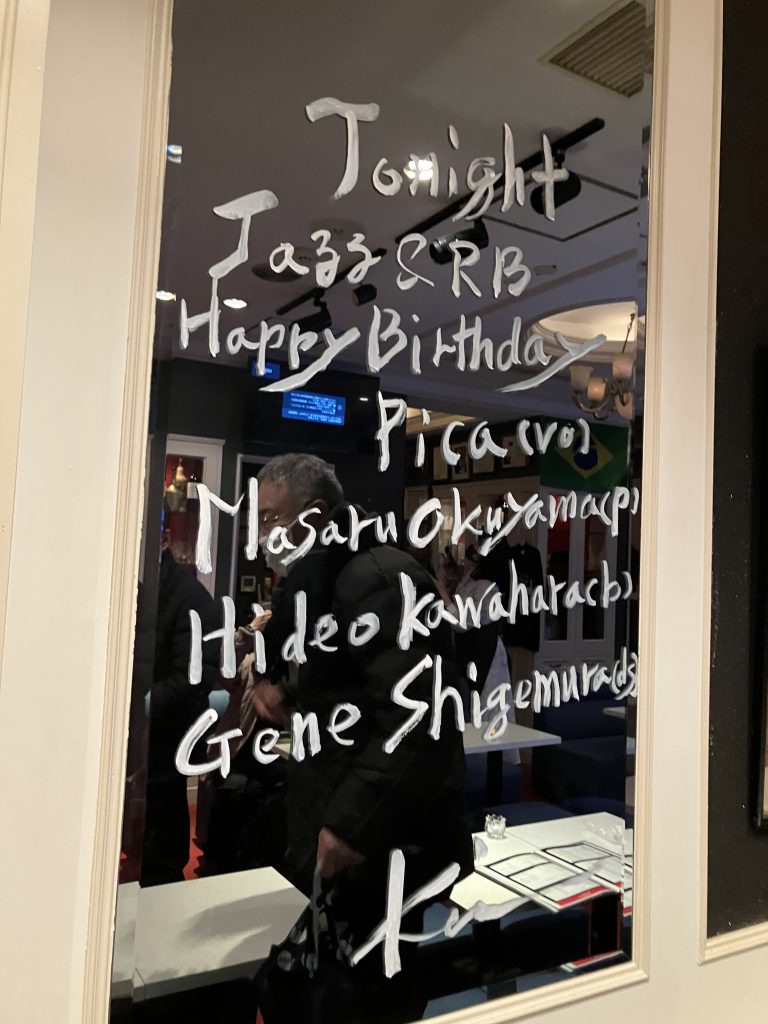 Tonight
Jazz & RB
Happy Birthday
Pica (vo)
Masaru Okuyama (p)
Hideo Kawahara (b)
Gene Shigemura (ds)